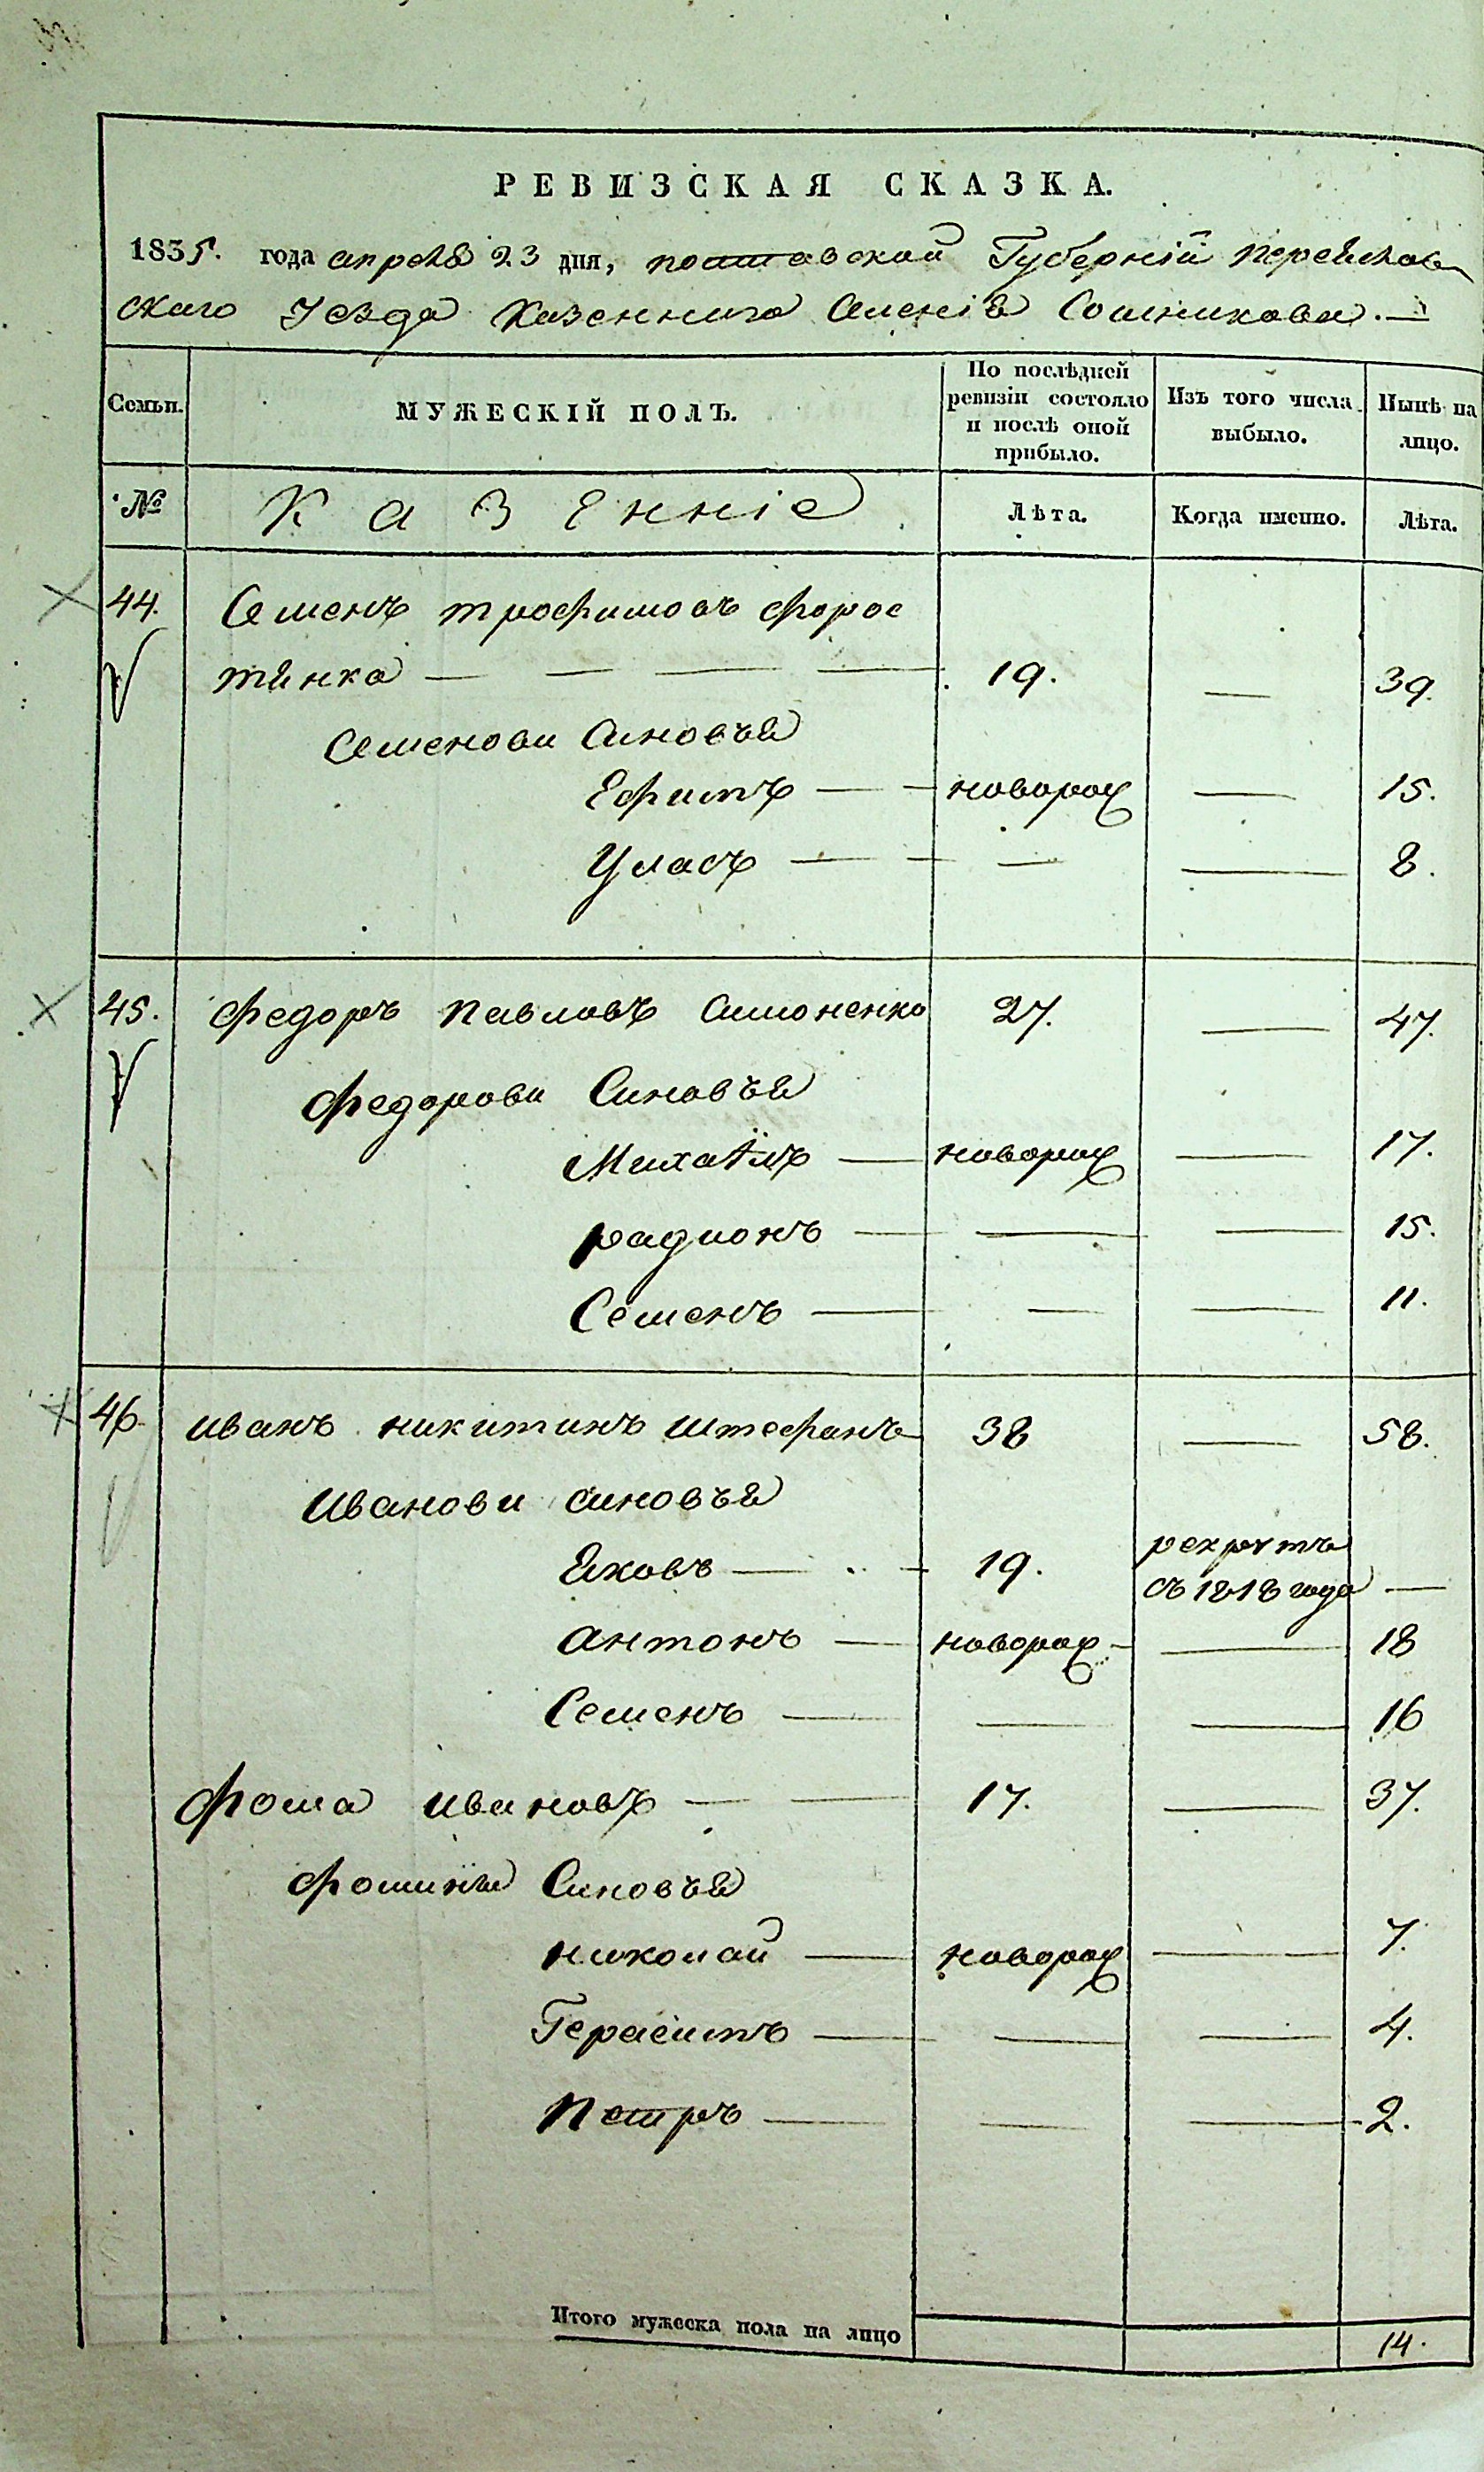 РЕВИЗСКАЯ СКАЗКА.
1835. года апреля 23 дня, полтавской Губернїи переяслов
скаго Уезда Казеннаго Селенїя Сошникова. —
Семьи. МУЖЕСКІЙ ПОЛЪ. По послѣдней ревизіи состояло и послѣ оной прибыло. Изъ того числа выбыло. Нынѣ на лицо.
№ Казеннїе Лѣта. Когда именно. Лѣта.
44. Семенъ трофимовъ форос
тянка — — — — 19. — 39.
Семенови Синовья
Ефимъ — — новорож — 15.
Уласъ — — — — 8.
45. Федоръ Павловъ Симоненко 27. — 47.
Федорови Синовья
Михаїлъ — новорож — 17.
радионъ — — — 15.
Семенъ — — — 11.
46. иванъ никитинъ штефанъ 38 — 58.
Иванови синовья
Яковъ — 19. рекрутъ
съ 1818 года —
антонъ — новорож — 18
Семенъ — — — 16
фома ивановъ — — 17. — 37.
фомини Синовья
николай — новорож — 7.
Герасимъ — — — 4.
Петръ — — — 2.
Итого мужеска пола на лицо 14.